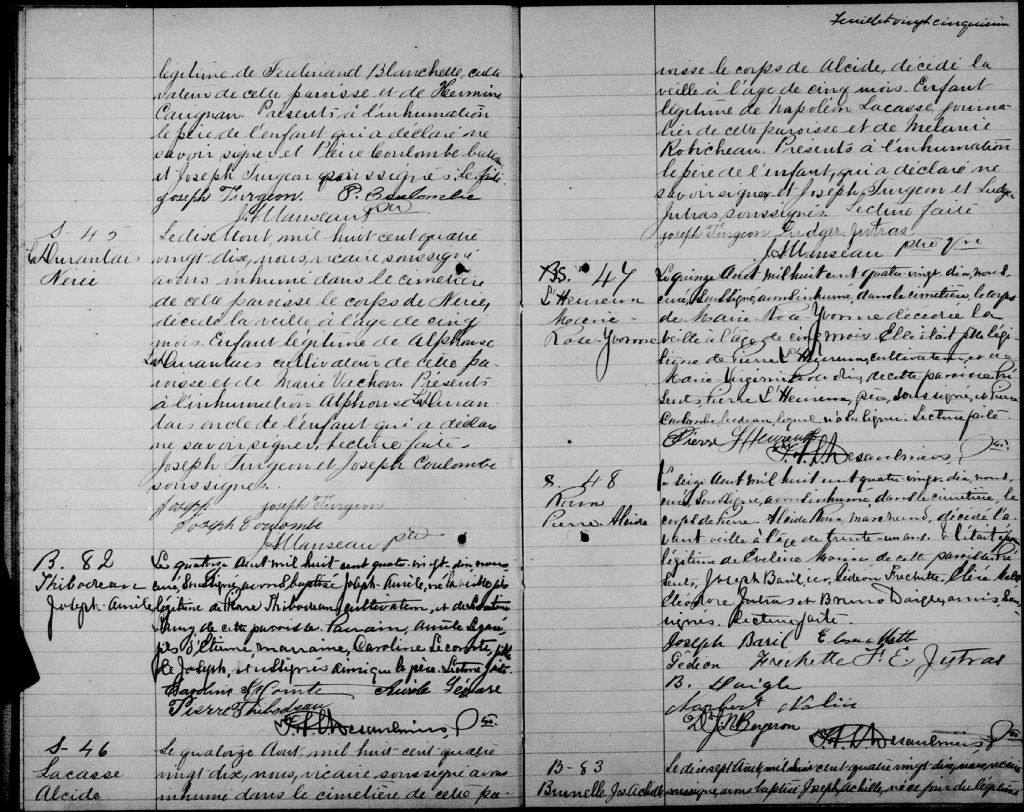 légitime de Ferdinand Blanchette, culti-
vateur de cette paroisse et de Hermine
Carignan. Présents à l'inhumation
le père de l'enfant qui a déclaré ne
savoir signer et Pierre Coulombe bedeau
et Joseph Turgeon soussignés. Lect. faite.
Joseph Turgeon. P. Coulombe
Manseau ptre
S-45
L'Amantais
Nérée
Le dix Aout, mil huit cent quatre
vingt-dix, nous, vicaire soussigné
avons inhumé dans le cimetière
de cette paroisse le corps de Nérée,
décédé la veille, à l'âge de cinq
mois. Enfant légitime de Alphonse
cultivateur de cette pa-
roisse et de Marie Vachon. Présents
à l'inhumation Alphonse
oncle de l'enfant qui a déclaré
ne savoir signer, Lecture faite.
Joseph Turgeon et Joseph Coulombe
soussignés.
Joseph Turgeon
Joseph Coulombe
Manseau ptre
B. 82
Thibodeau
Joseph-Aurèle
Le quatorze Aout mil huit cent quatre-vingt-dix, nous,
curé, soussigné, avons baptisé Joseph-Aurèle, né la veille, fils
légitime de Pierre Thibodeau, cultivateur, et de
de cette paroisse. Parrain, Aurèle
marraine, Caroline Lecomte, fille
de Joseph, soussignés ainsi que le père. Lecture faite.
Caroline LeComte Aurèle
Pierre Thibodeau
Desaulniers, Ptre
S-46
Lacasse
Alcide
Le quatorze Aout mil huit cent quatre
vingt dix, nous, vicaire soussigné avons
inhumé dans le cimetière de cette pa-
Feuillet vingt cinquième
roisse le corps de Alcide, décédé la
veille à l'âge de cinq mois. Enfant
légitime de Napoléon Lacasse journa-
lier de cette paroisse et de Mélanie
Robicheau. Présents à l'inhumation
le père de l'enfant, qui a déclaré ne
savoir signer et Joseph Turgeon et Ludger
Jutras, soussignés. Lecture faite
Joseph Turgeon Ludger Jutras
Manseau ptre Vic
S. 47
L'Heureux
Marie-
Rose-Yvonne
Le quinze Aout mil huit cent quatre-vingt-dix, nous,
curé, soussigné, avons inhumé, dans le cimetière, le corps
de Marie-Rose-Yvonne décédée la
veille à l'âge de cinq mois. Elle était fille légi-
time de Pierre L'Heureux, cultivateur, et de
Marie Virginie de cette paroisse. Pré-
sents, Pierre L'Heureux, père, soussigné, et Pierre
Coulombe, bedeau, lequel n'a su signer. Lecture faite.
Pierre L'Heureux
Desaulniers, Ptre
S. 48
Roux
Pierre Alcide
Le seize Aout mil huit cent quatre vingt dix, nous,
curé, soussigné, avons inhumé, dans le cimetière, le
corps de Pierre Alcide Roux, marchand, décédé l'a-
vant veille à l'âge de trente-un ans. Il était époux
légitime de Eveline de cette paroisse. Pré-
sents, Joseph Baril, Gédéon Frechette,
Jutras et Bruno Daigle, amis, sous-
signés. Lecture faite.
Joseph Baril
Gédéon Frechette F. E. Jutras
B. Daigle
Norbert
Dr J.N. Bergeron
Desaulniers, Ptre
B-83
Brunelle Jos. Achille
Le dix sept Aout, mil huit cent quatre vingt dix, nous, vicaire
soussigné, avons baptisé Joseph, Achille, né ce jour du légitime